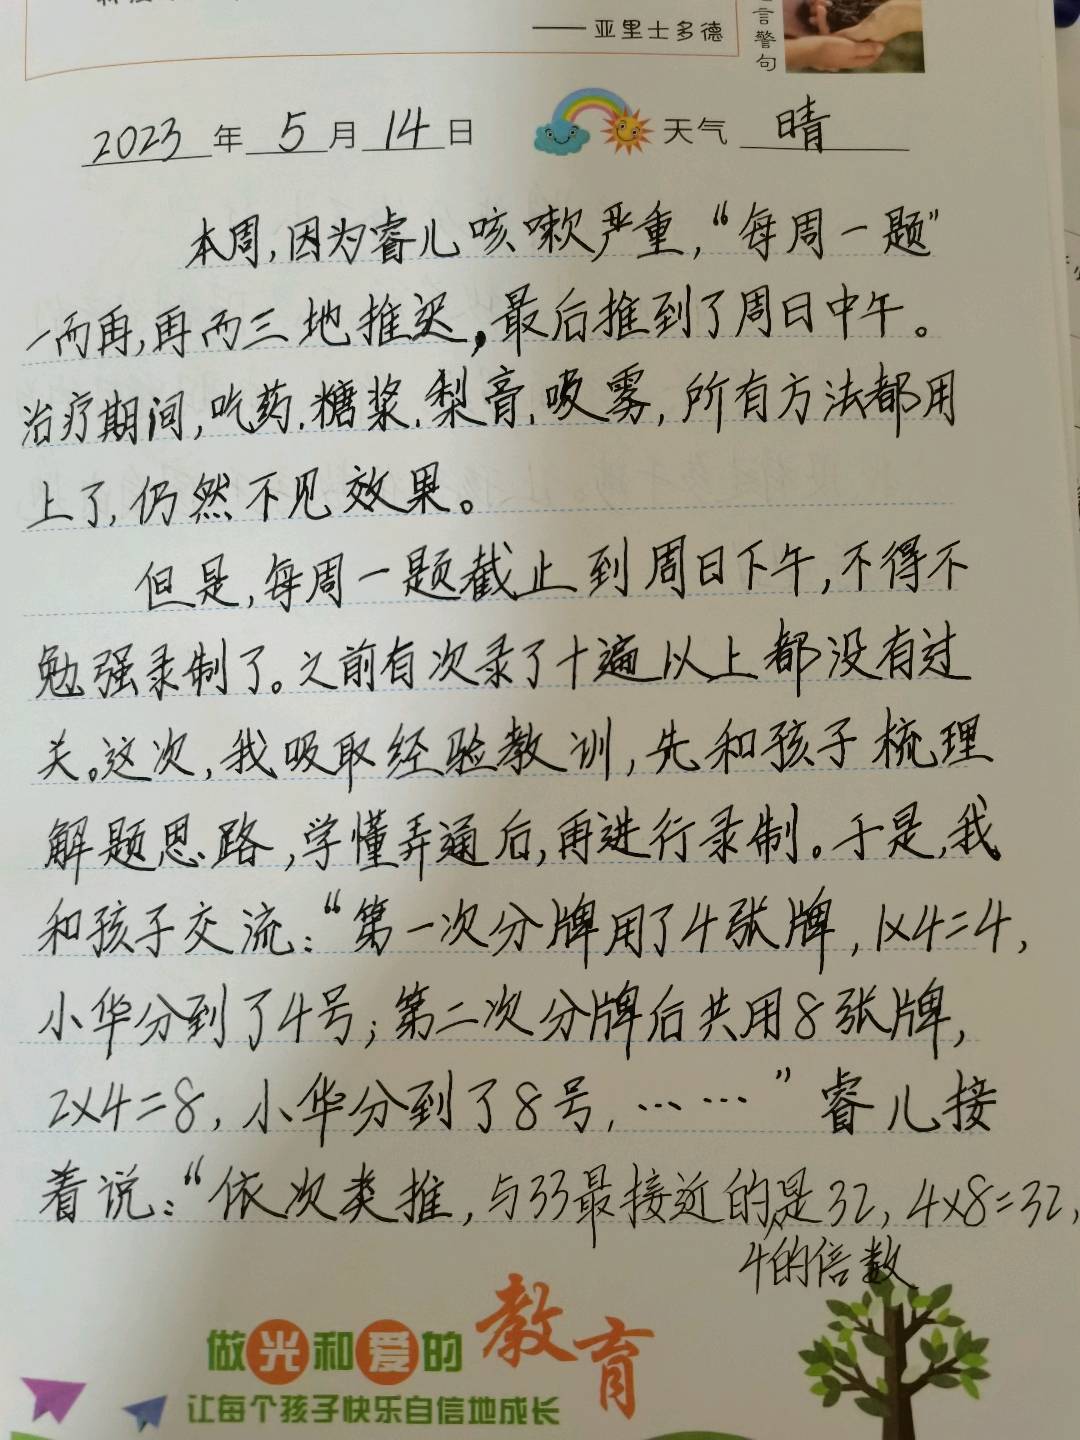 ——亚里士多德
言警句
2023年5月14日 天气 晴
本周,因为睿儿咳嗽严重,“每周一题”
一而再,再而三地推迟,最后推到了周日中午。
治疗期间,吃药、糖浆、梨膏、吸雾,所有方法都用
上了,仍然不见效果。
但是,每周一题截止到周日下午,不得不
勉强录制了。之前有次录了十遍以上都没有过
关。这次,我吸取经验教训,先和孩子梳理
解题思路,学懂弄通后,再进行录制。于是,我
和孩子交流:“第一次分牌用了4张牌,1×4=4,
小华分到了4号;第二次分牌后共用8张牌,
2×4=8,小华分到了8号,……”睿儿接
着说:“依次类推,与33最接近的是32,4×8=32,
4的倍数
做光和爱的教育
让每个孩子快乐自信地成长